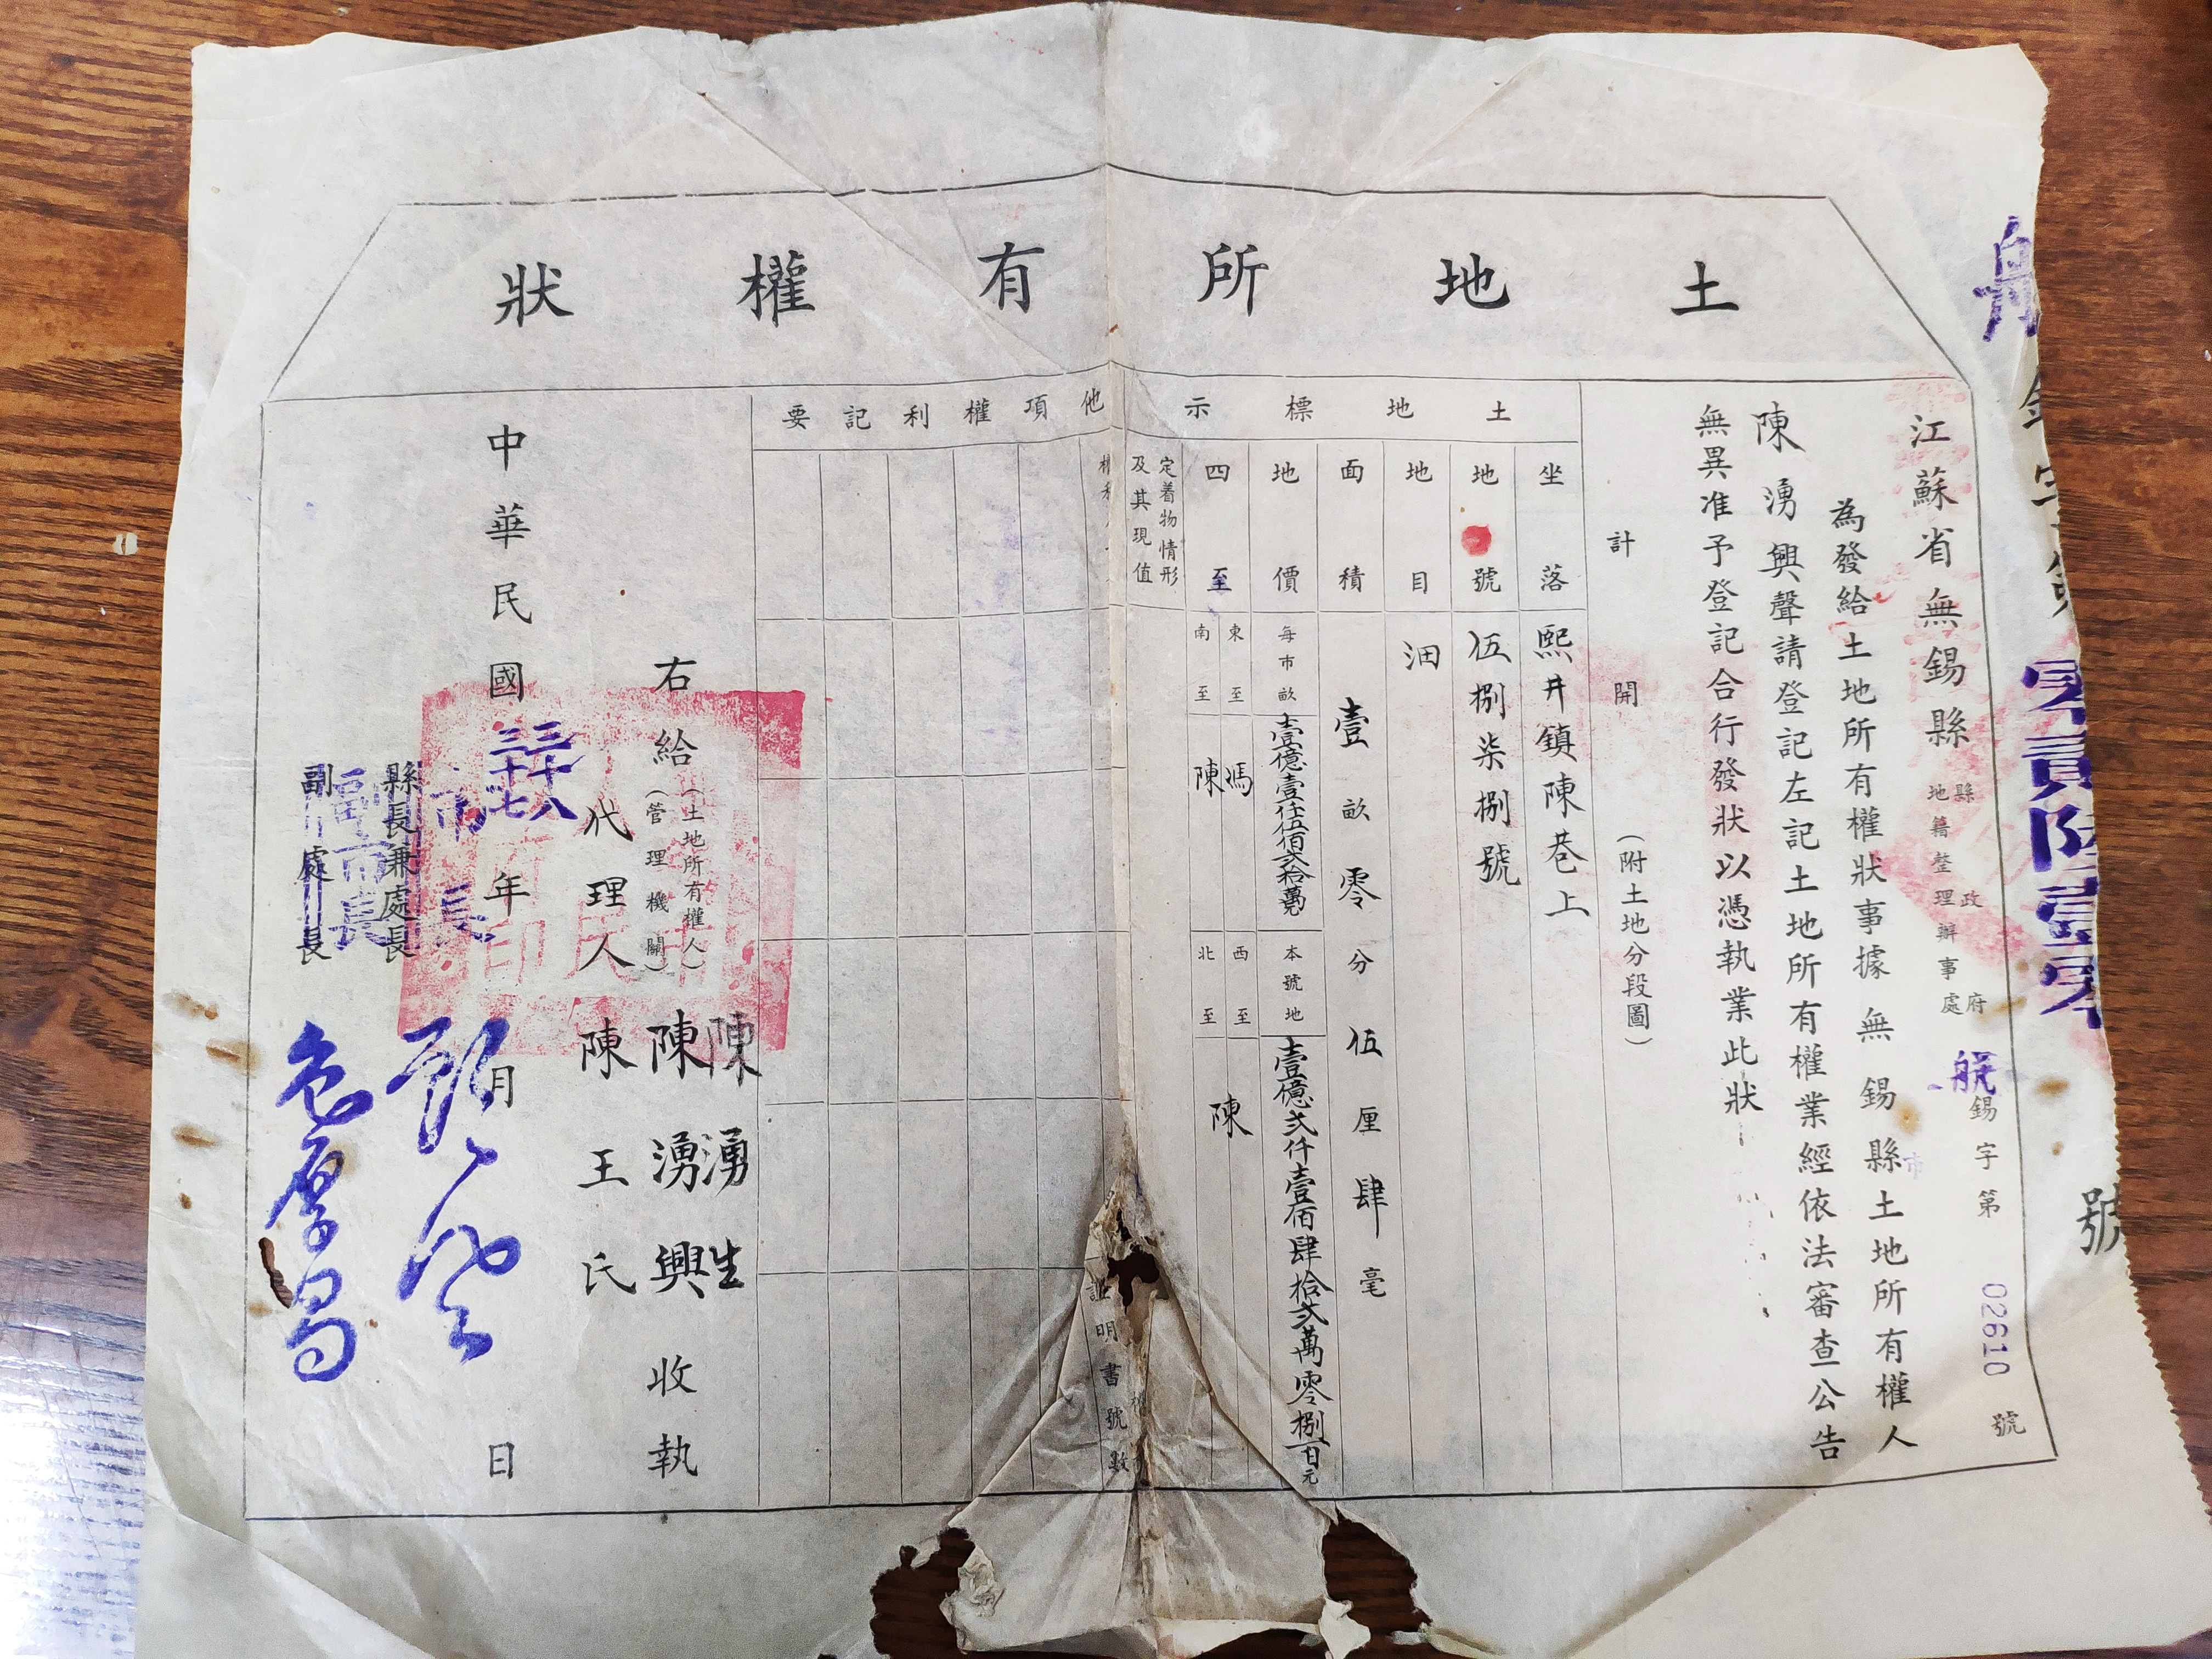 土地所有權狀
江蘇省無錫縣
縣政府
地籍整理辦事處
錫字第02610號
為發給土地所有權狀事據無錫縣土地所有權人
陳湧興聲請登記左記土地所有權業經依法審查公告
無異准予登記合行發狀以憑執業此狀
計開(附土地分段圖)
土地標示
坐落
熙井鎮陳巷上
地號
伍捌柒捌號
地目
面積
壹畝零分伍厘肆毫
地價
每市畝
本號地
壹億弍仟壹佰肆拾弍萬零捌百元
四至
東至
馮
南至
陳
西至
陳
北至
定着物情形
及其現值
他項權利記要
證明書號數
右給
(土地所有權人)
(管理機關)
陳湧生
陳湧興
收執
代理人陳王氏
中華民國
年月日
市長
縣長兼處長
副市長
副處長
零貳陸壹零
號